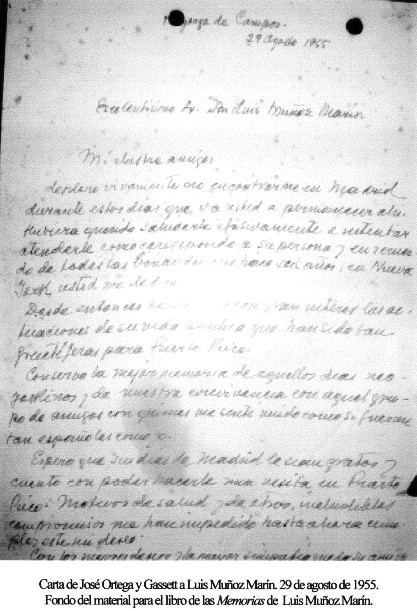 de Campos.
29 Agosto 1955
Excelentísimo Sr. Don Luis Muñoz Marín
Mi ilustre amigo:
deploro vivamente no encontrarme en Madrid
durante estos días que va usted a permanecer ahí.
Hubiera querido saludarle efusivamente e intentar
atenderle como corresponde a su persona y en recuer-
do de todas las bondades que hace seis años, en Nueva
York, usted me
Desde entonces con gran interés las ac-
tuaciones de su vida que han sido tan
fructíferas para Puerto Rico.
Conservo la mejor memoria de aquellos días neo-
yorkinos y de nuestra convivencia con aquel gru-
po de amigos con quienes me sentí unido como si fueran
tan españoles como yo.
Espero que sus días de Madrid le sean gratos y
cuento con poder hacerle una visita en Puerto
Rico. Motivos de salud y de otros, ineludibles
compromisos me han impedido hasta ahora cum-
plir este mi deseo.
Con los mejores deseos y la mayor simpatía queda su amigo
Carta de José Ortega y Gassett a Luis Muñoz Marín. 29 de agosto de 1955.
Fondo del material para el libro de las Memorias de Luis Muñoz Marín.